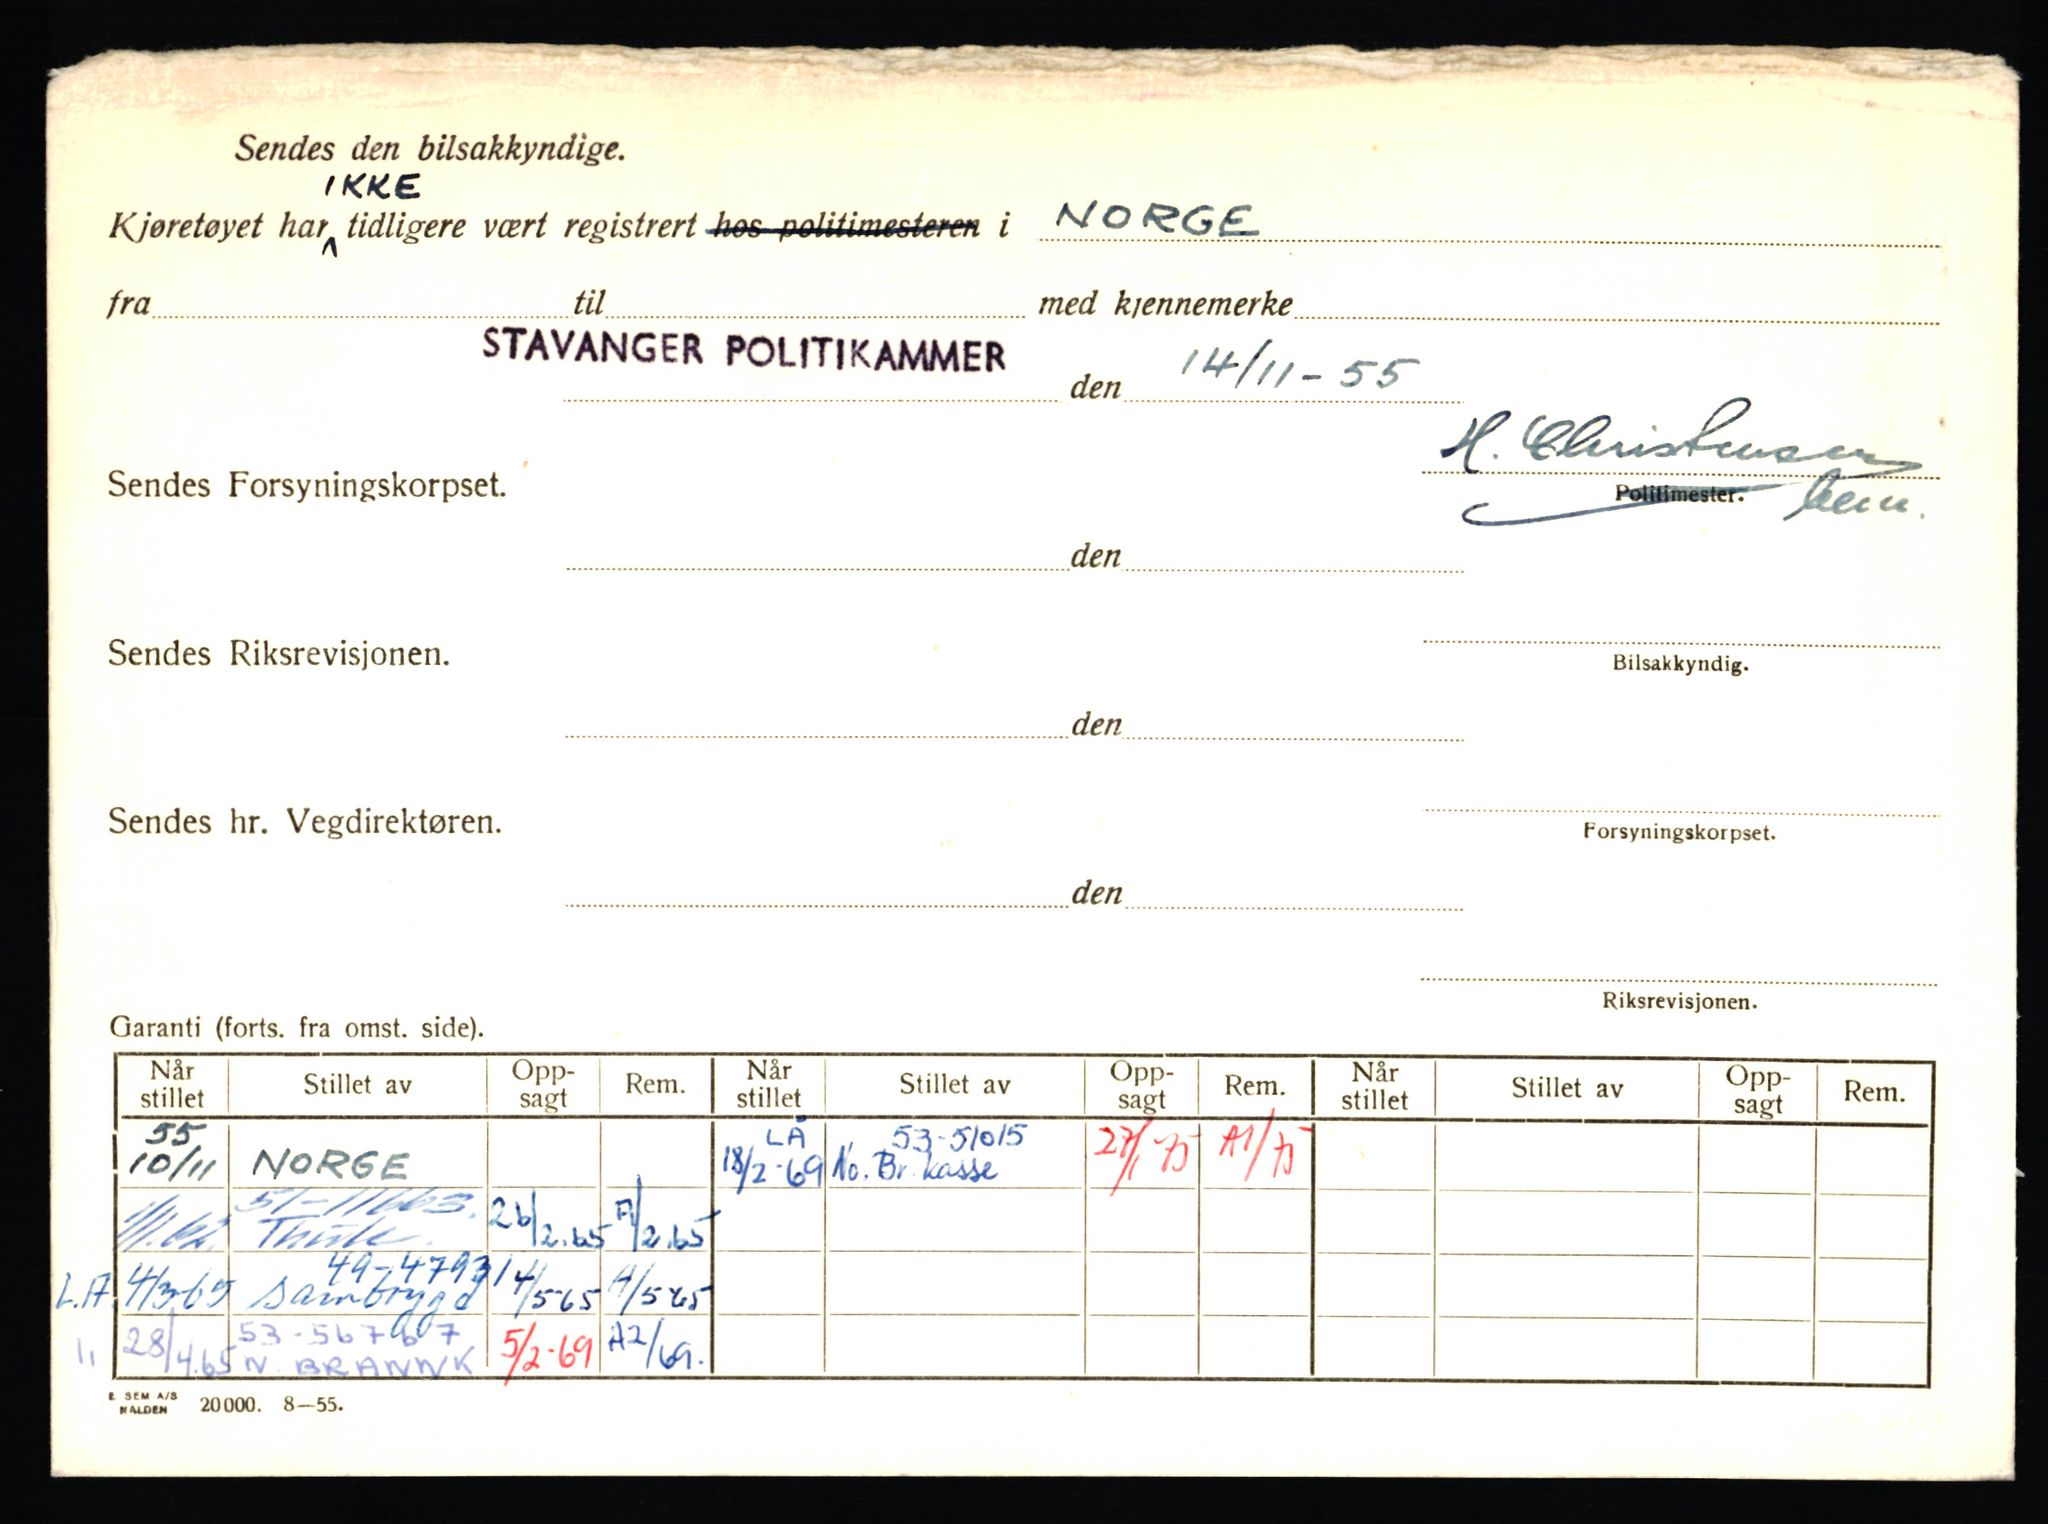 Sendes den bilsakkyndige.
IKKE
Kjøretøyet har tidligere vært registrert hos politimesteren i NORGE
fra til med kjennemerke
STAVANGER POLITIKAMMER
den 14/11-55
H. Christensen
Sendes Forsyningskorpset.
Politimester.
den
Sendes Riksrevisjonen.
Bilsakkyndig.
den
Sendes hr. Vegdirektøren.
Forsyningskorpset.
den
Riksrevisjonen.
Garanti (forts. fra omst. side).
Når stillet Stillet av Opp-sagt Rem. Når stillet Stillet av Opp-sagt Rem. Når stillet Stillet av Opp-sagt Rem.
55 LÅ 53-51015
10/11 NORGE 18/2-69 No. Br. kasse 27/1-75 A1/75
51-11663.
26/2.65 A/2.65
49-47931
L.A. 4/3-65 Sambygd 4/5-65 A/5-65
53-56767
" 28/4.65 N. BRANNK 5/2-69 A2/69.
E. SEM A/S
HALDEN 20000. 8—55.